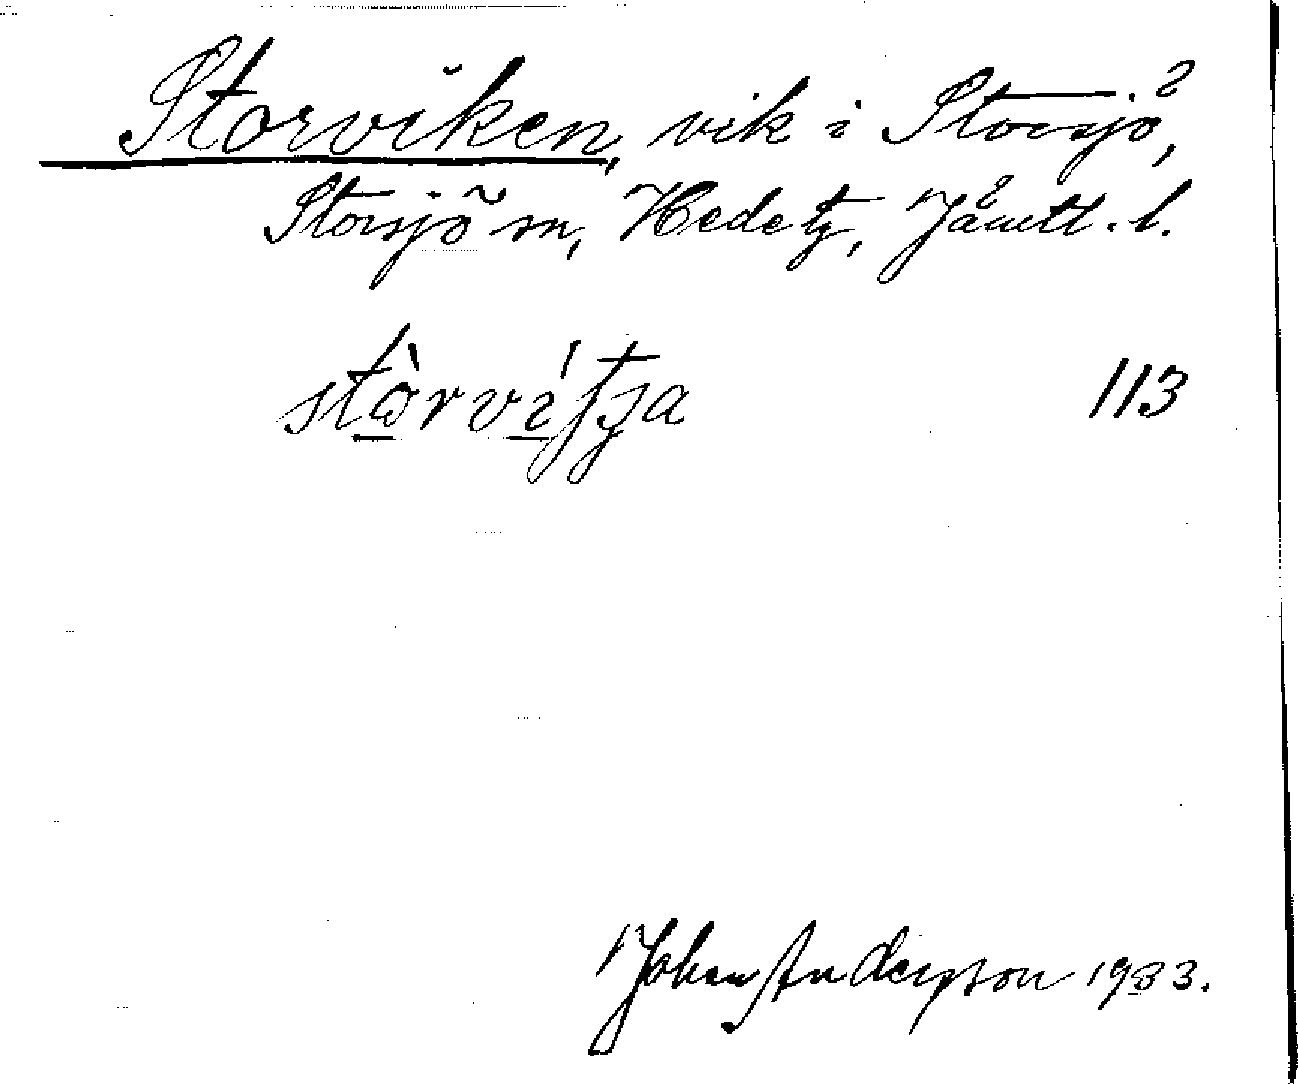 Storviken, vik i Storsjö,
Storsjö sn, Hede tg, Jämtl. l.
stòrvítja 113
Johan Anderson 1933.